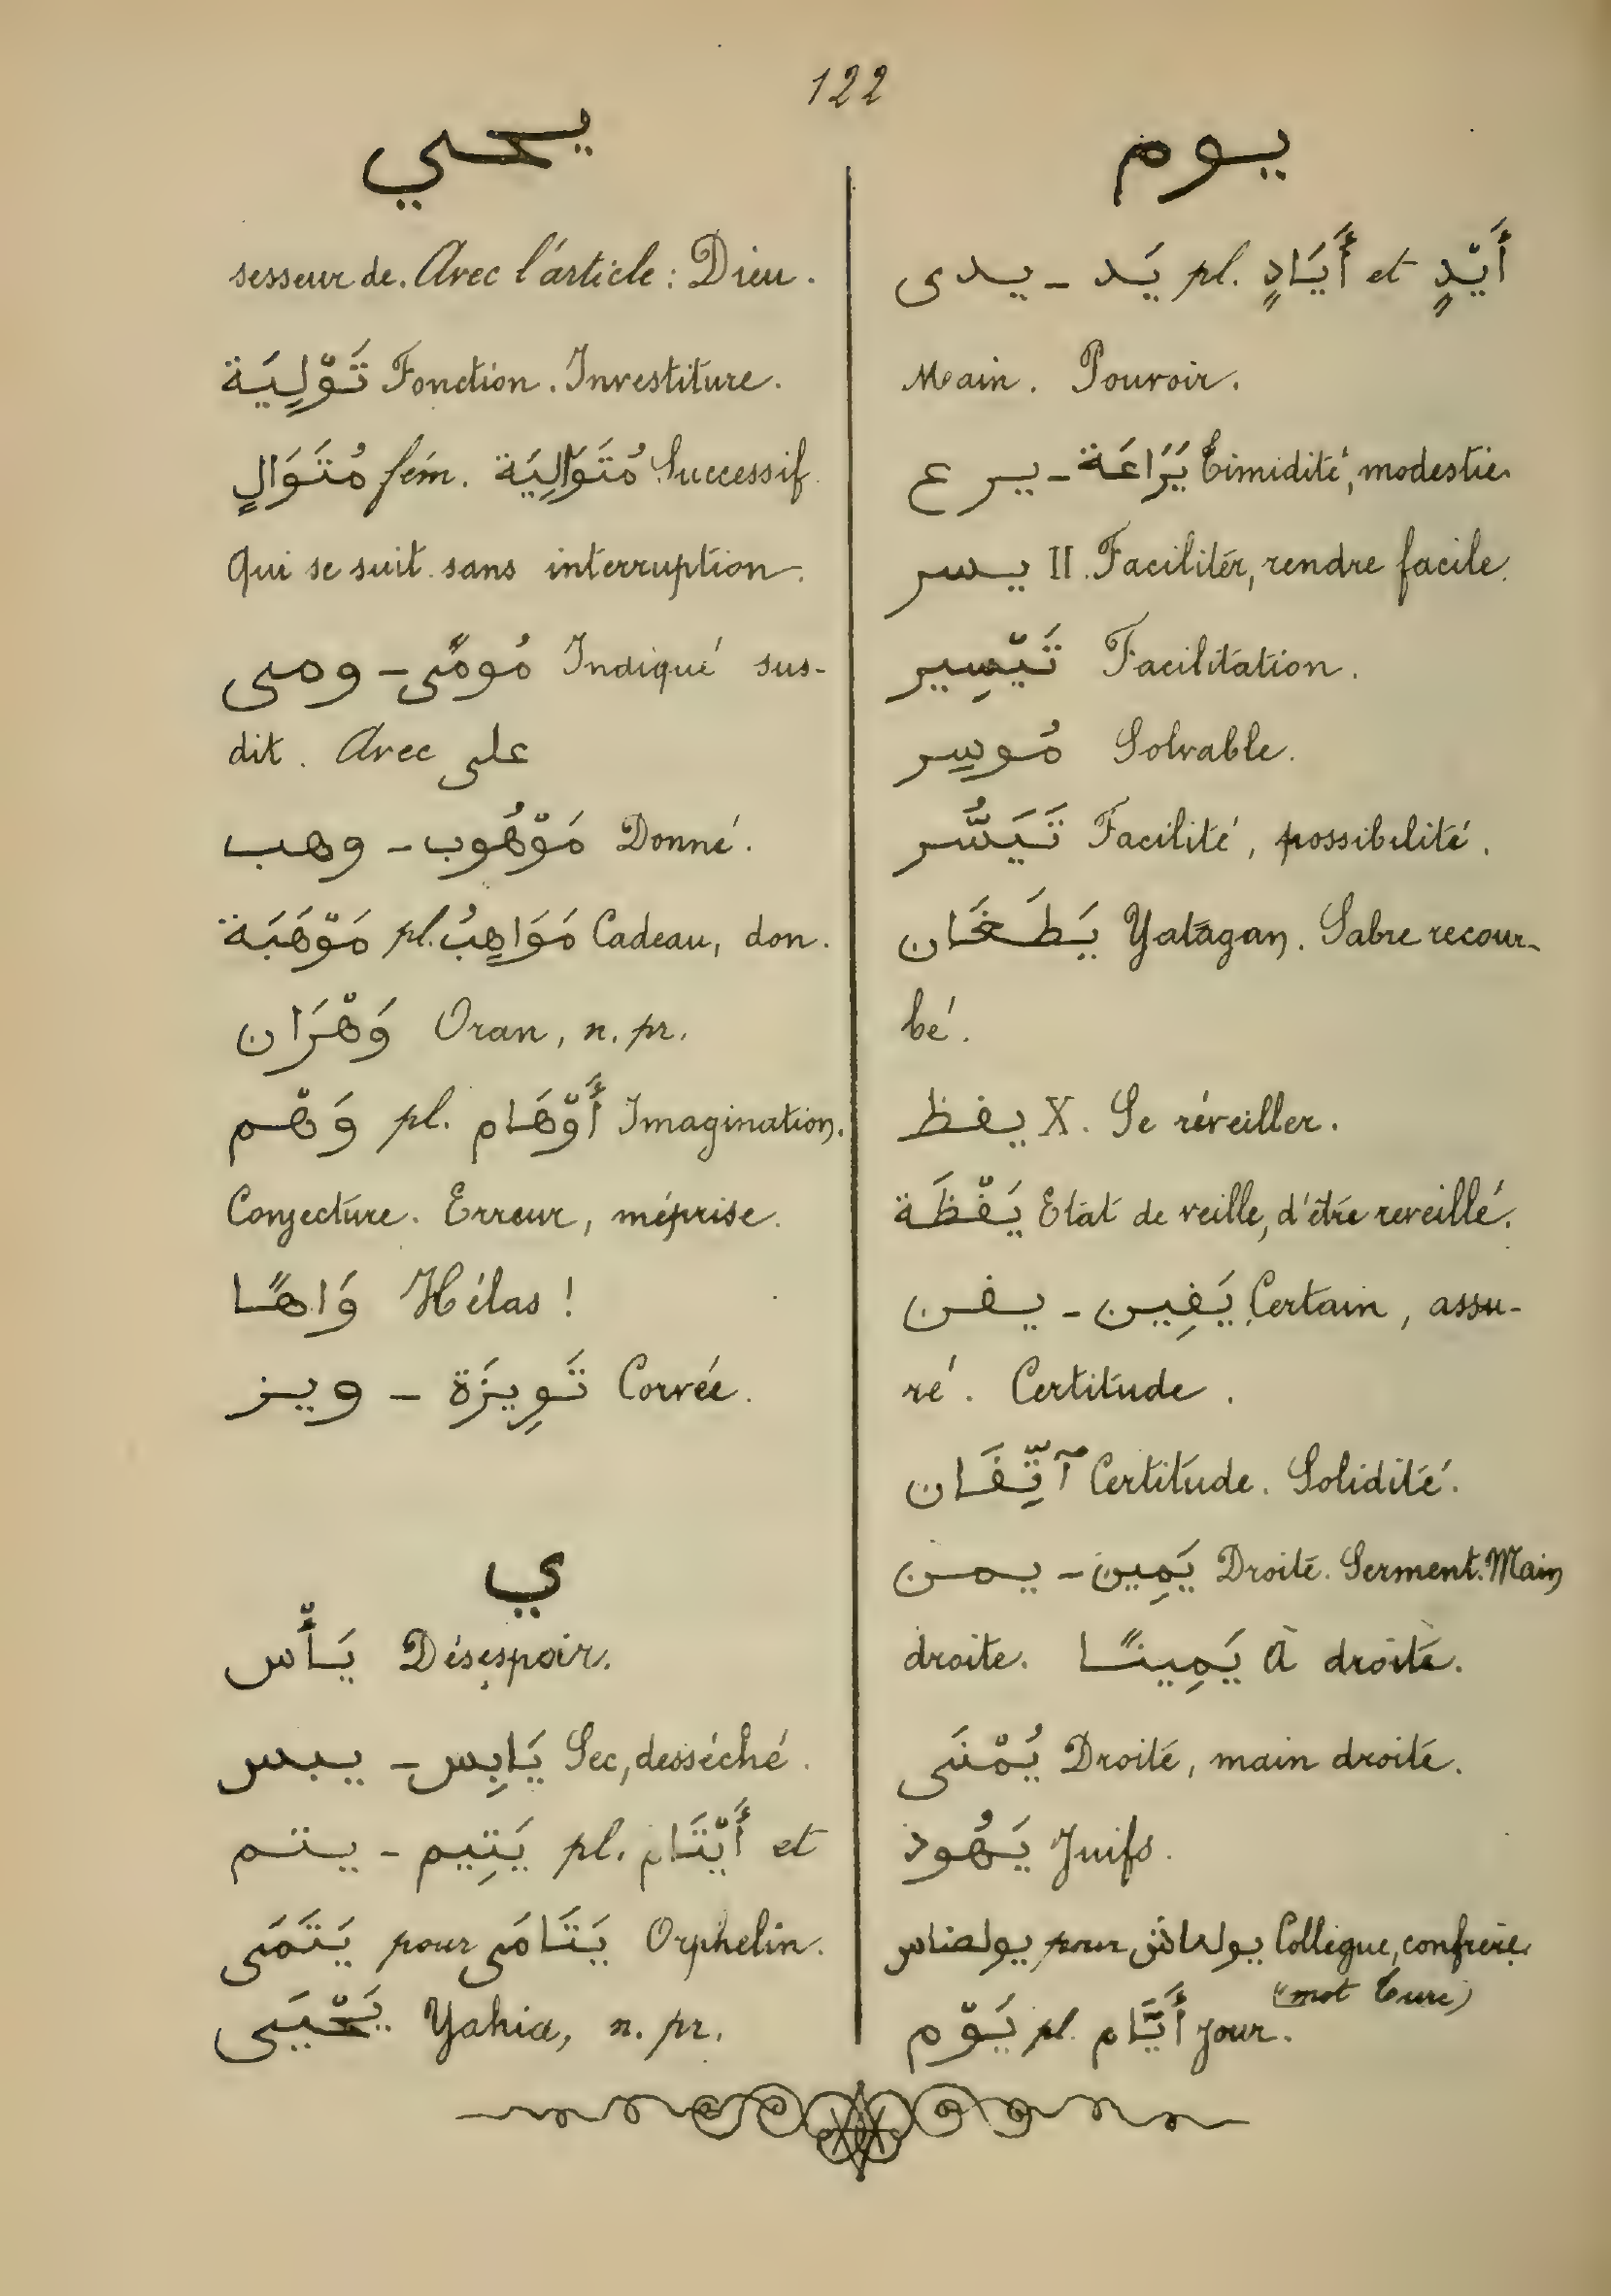 122
يحيي
sesseur de. Avec l'article : Dieu.
تَوْلِيَة Fonction. Investiture.
مُتَوَالٍ fém. مُتَوَالِيَة Successif.
Qui se suit sans interruption.
ومى - مُومًى Indiqué sus-
dit. Avec على
وهب - مَوْهُوب Donné.
مَوْهَبَة pl. مَوَاهِبُ Cadeau, don.
وَهْرَان Oran, n. pr.
وَهْم pl. أَوْهَام Imagination.
Conjecture. Erreur, méprise.
وَاهًا Hélas !
ويز - تَوِيزَة Corvée.
ي
يَأْس Désespoir.
يبس - يَابِس Sec, desséché.
يتم - يَتِيم pl. أَيْتَام et
يَتَمَى pour يَتَامَى Orphelin.
يَحْيَى Yahia, n. pr.
يوم
يدى - يَد pl. أَيَادٍ et أَيْدٍ
Main. Pouvoir.
يرع - يَرَاعَة Timidité, modestie.
يسر II. Faciliter, rendre facile.
تَيْسِير Facilitation.
مُوسِر Solvable.
تَيَسُّر Facilité, possibilité.
يَطَغَان Yatagan. Sabre recour-
bé.
يڧظ X. Se réveiller.
يَڧْظَة Etat de veille, d'être reveillé.
يڧن - يَڧِين Certain, assu-
ré. Certitude.
آتِّڧَان Certitude. Solidité.
يمن - يَمِين Droite. Serment. Main
droite. يَمِينًا à droite.
يُمْنَى Droite, main droite.
يَهُود Juifs.
pour Collègue, confrère.
(mot turc)
يَوْم pl. أَيَّام jour.